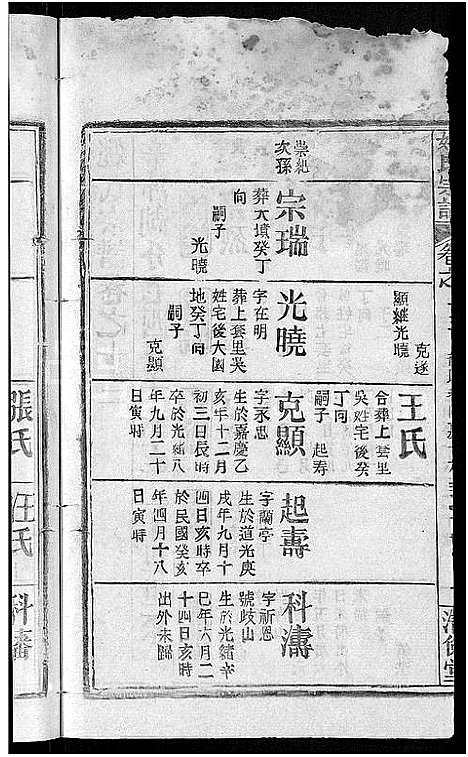 崇紀
次孫
宗瑞
葬大墳癸丁
向
嗣子
光曉
顯繼光曉
克遂
光曉
字在明
葬上套里吳
姓宅後大園
地癸丁向
嗣子
克顯
王氏
合葬上套里
吳姓宅後癸
丁向
嗣子
起寿
克顯
字永思
生於嘉慶乙
亥年十二月
初三日辰時
卒於光緒八
年九月二十
日寅時
起壽
字蘭亭
生於道光庚
戌年九月十
四日亥時卒
於民國癸亥
年四月十八
日寅時
科濤
字祈恩
號歧山
生於光緒辛
巳年六月二
十四日亥時
出外未歸
張氏
汪氏
科
氏宗譜
卷之